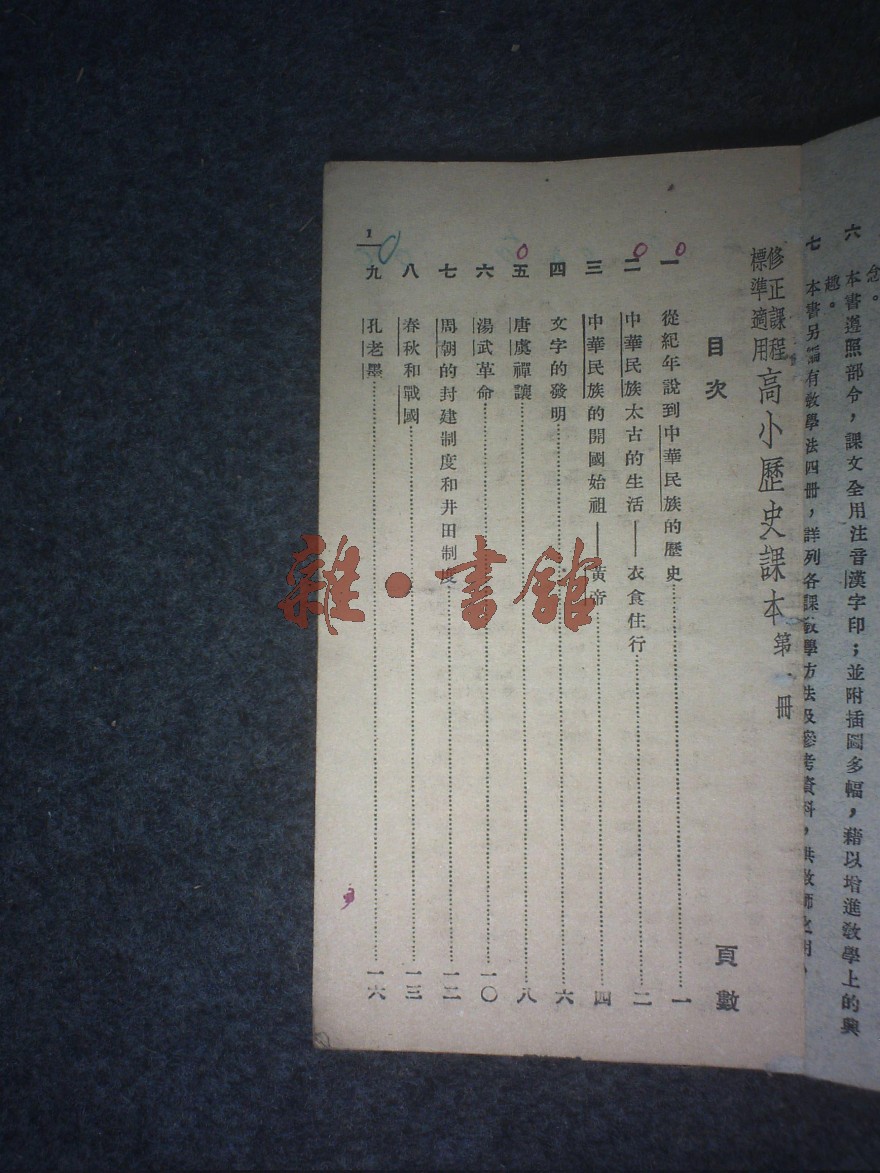 念。
六 本書遵照部令，課文全用注音漢字印；並附插圖多幅，藉以增進敎學上的興
趣。
七 本書另編有敎學法四冊，詳列各課敎學方法及參考資料，供敎師之用。
修正課程
標準適用
高小歷史課本 第一冊
目次 頁數
一 從紀年說到中華民族的歷史 一
二 中華民族太古的生活——衣食住行 二
三 中華民族的開國始祖——黃帝 四
四 文字的發明 六
五 唐虞禪讓 八
六 湯武革命 一〇
七 周朝的封建制度和井田制度 一二
八 春秋和戰國 一三
九 孔老墨 一六
1
雜·書館